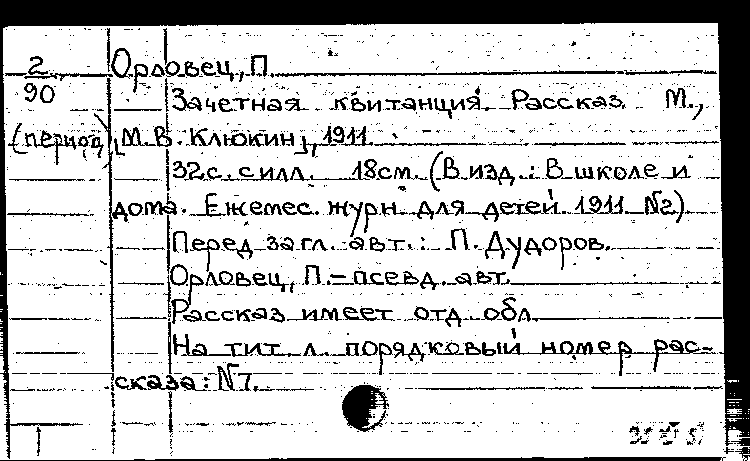 2
90
(период)
Орловец, П.
Зачетная квитанция. Рассказ. М.,
[М.В. Клюкин], 1911.
32с. с илл. 18см. (В изд.: В школе и
дома. Ежемес. журн. для детей. 1911. №2).
Перед загл. авт.: П. Дудоров.
Орловец, П. – псевд. авт.
Рассказ имеет отд. обл.
На тит. л. порядковый номер рас-
сказа: №7.